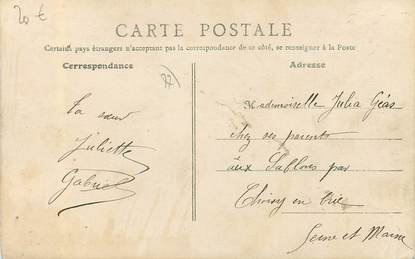 20 €
CARTE POSTALE
Certains pays étrangers n'acceptant pas la correspondance de ce côté, se renseigner à la Poste
Correspondance
Adresse
77
Ta sœur
Juliette
Gabriel
Mademoiselle Julia Géas
chez ses parents
aux Sablons par
Thoisy en Brie
Seine et Marne